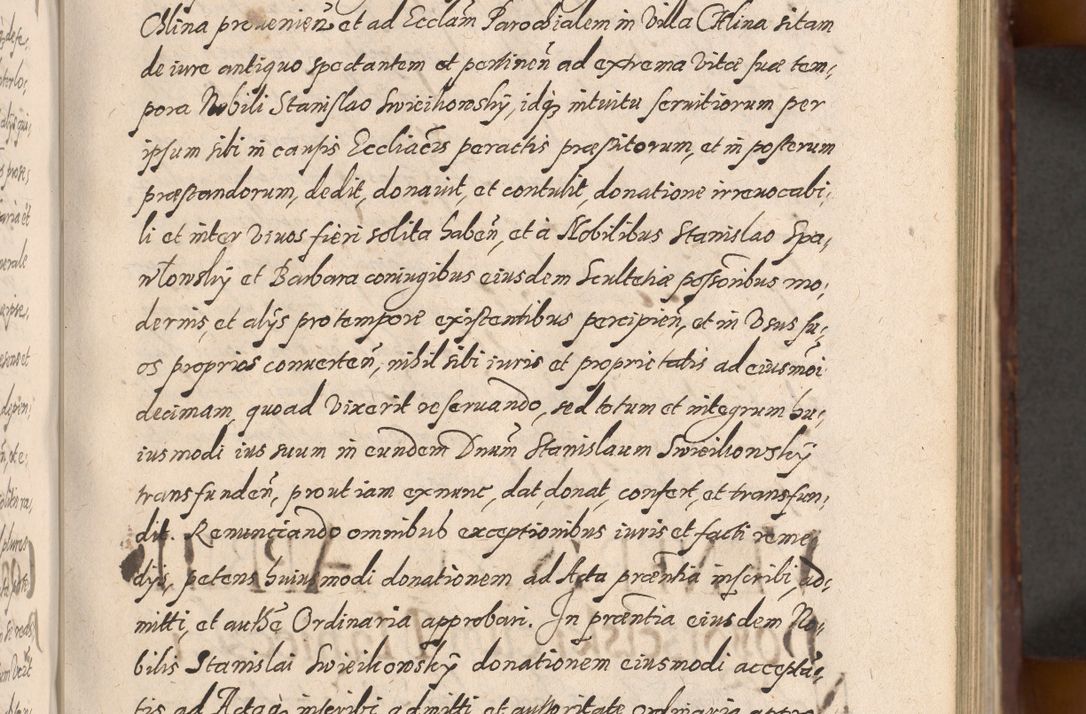 Chlina provenień et ad Ecclam̃ Parochialem in Villa Chlina sitam
de iure antiquo spectantem et pertineñ ad extrema vitæ suæ tem,
pora Nobili Stanislao Swieikowsky, idq3 intuitu servitiorum per
ipsum sibi in causis Eccliacis peractis præstitorum, et in posterum
præstandorum, dedit, donavit, et contulit, donatione irrevocabi,
li et inter vivos fieri solita habeñ, et à Nobilibus Stanislao Spa,
włowsky et Barbara coniugibus eiusdem Scultetiæ possoribus mo,
dernis, et alijs pro tempore existentibus percipień, et in Usus su,
os proprios converteñ, nihil sibi iuris et proprietatis ad eiusmõi
decimam, quoad vixerit reservando, sed totum et integrum hu,
iusmodi ius suum in eundem Dnum̃ Stanislaum Swieikowsky
transfundeñ, prout iam exnunc, dat, donat, confert, et transfun,
dit. Renunciando omnibus exceptionibus iuris et facti reme
dijs, petens huiusmodi donationem ad Acta præntia inscribi, ad,
mitti, et authẽ Ordinaria approbari. In præntia eiusdem No,
bilis Stanislai Swieikowsky donationem eiusmodi accepta,
tis ad Acta inscribi admitti et authoritate ordinaria appro